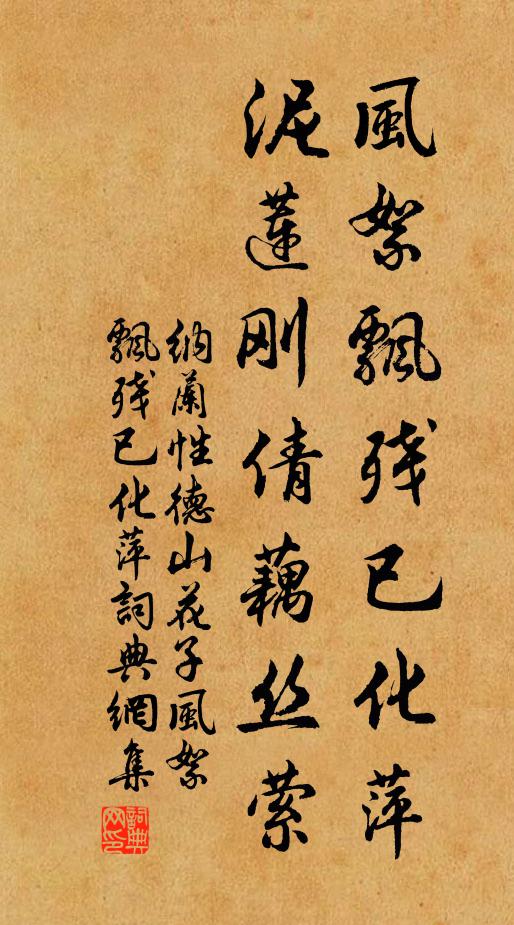 風絮飄殘已化萍
泥蓮刚倩藕丝萦
納蘭性德山花子風絮
飄殘已化萍詞典網集
詞典网印